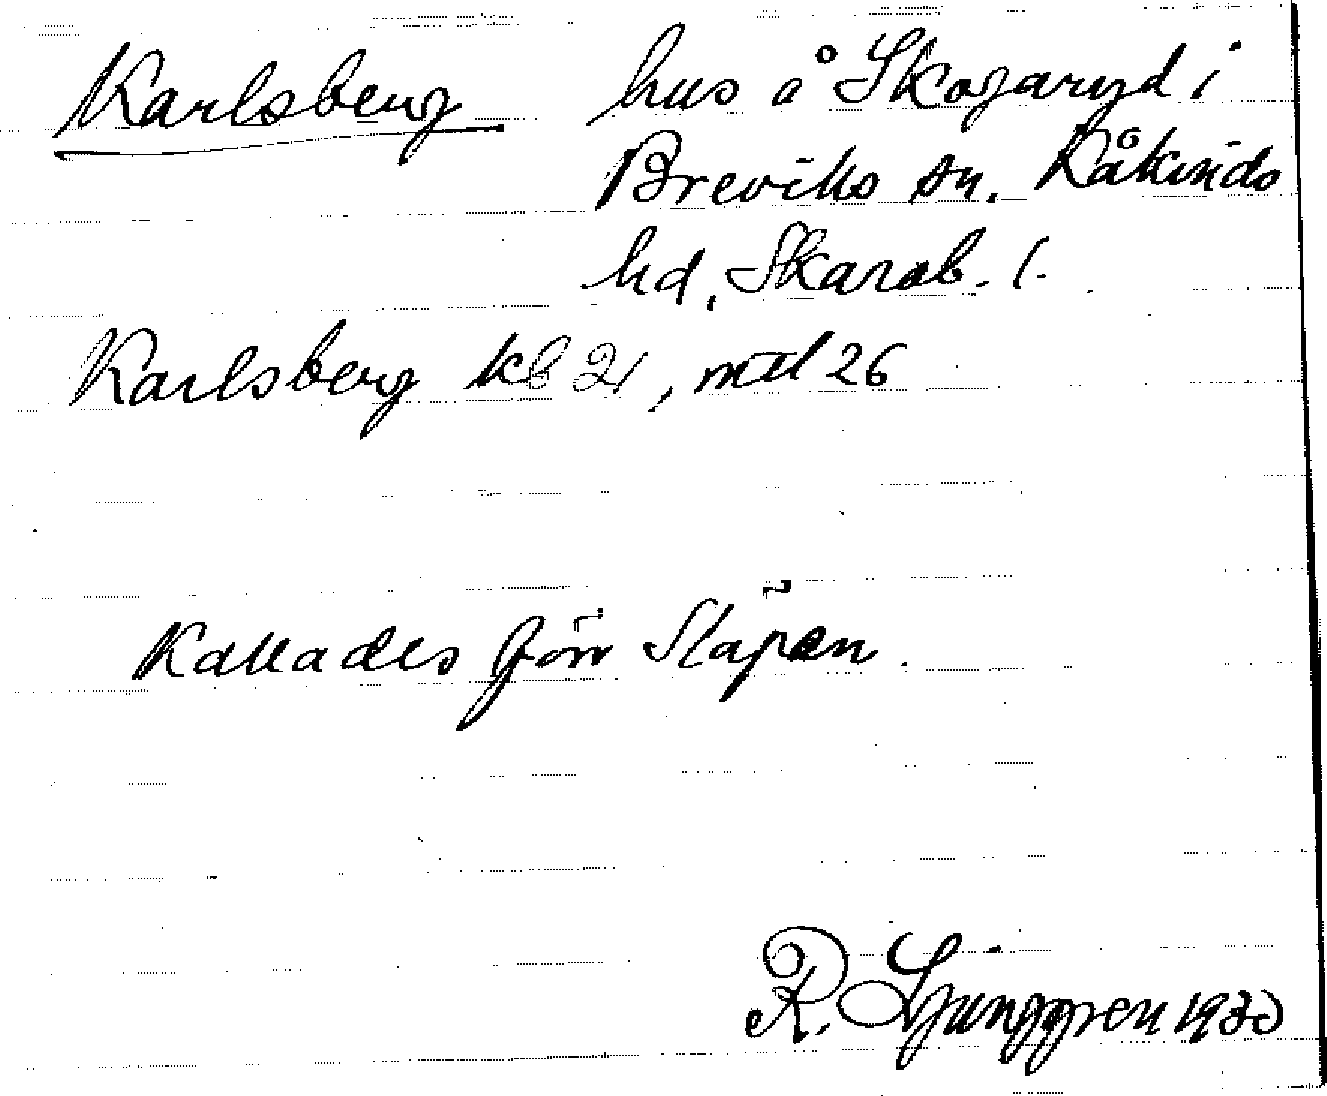 Karlsberg hus å Skogaryd i
Breviks sn. Kåkinds
hd, Skarab. l.
Karlsberg kb 21, mtl 26
Kallades förr Släpen.
R. Ljunggren 1930